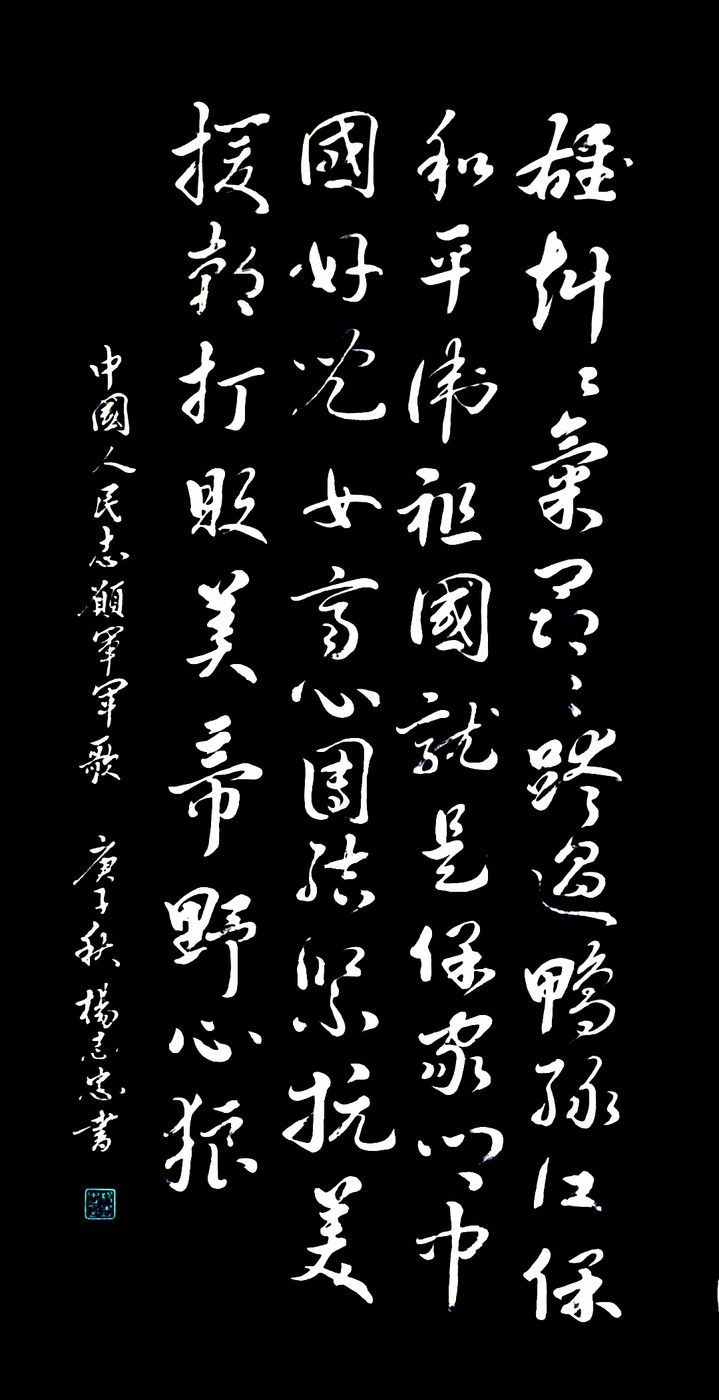 雄赳〻氣昂〻跨過鴨綠江保
和平衛祖國就是保家鄉中
國好兒女齊心團結緊抗美
援朝打敗美帝野心狼
中國人民志願軍軍歌 庚子秋 楊志忠書